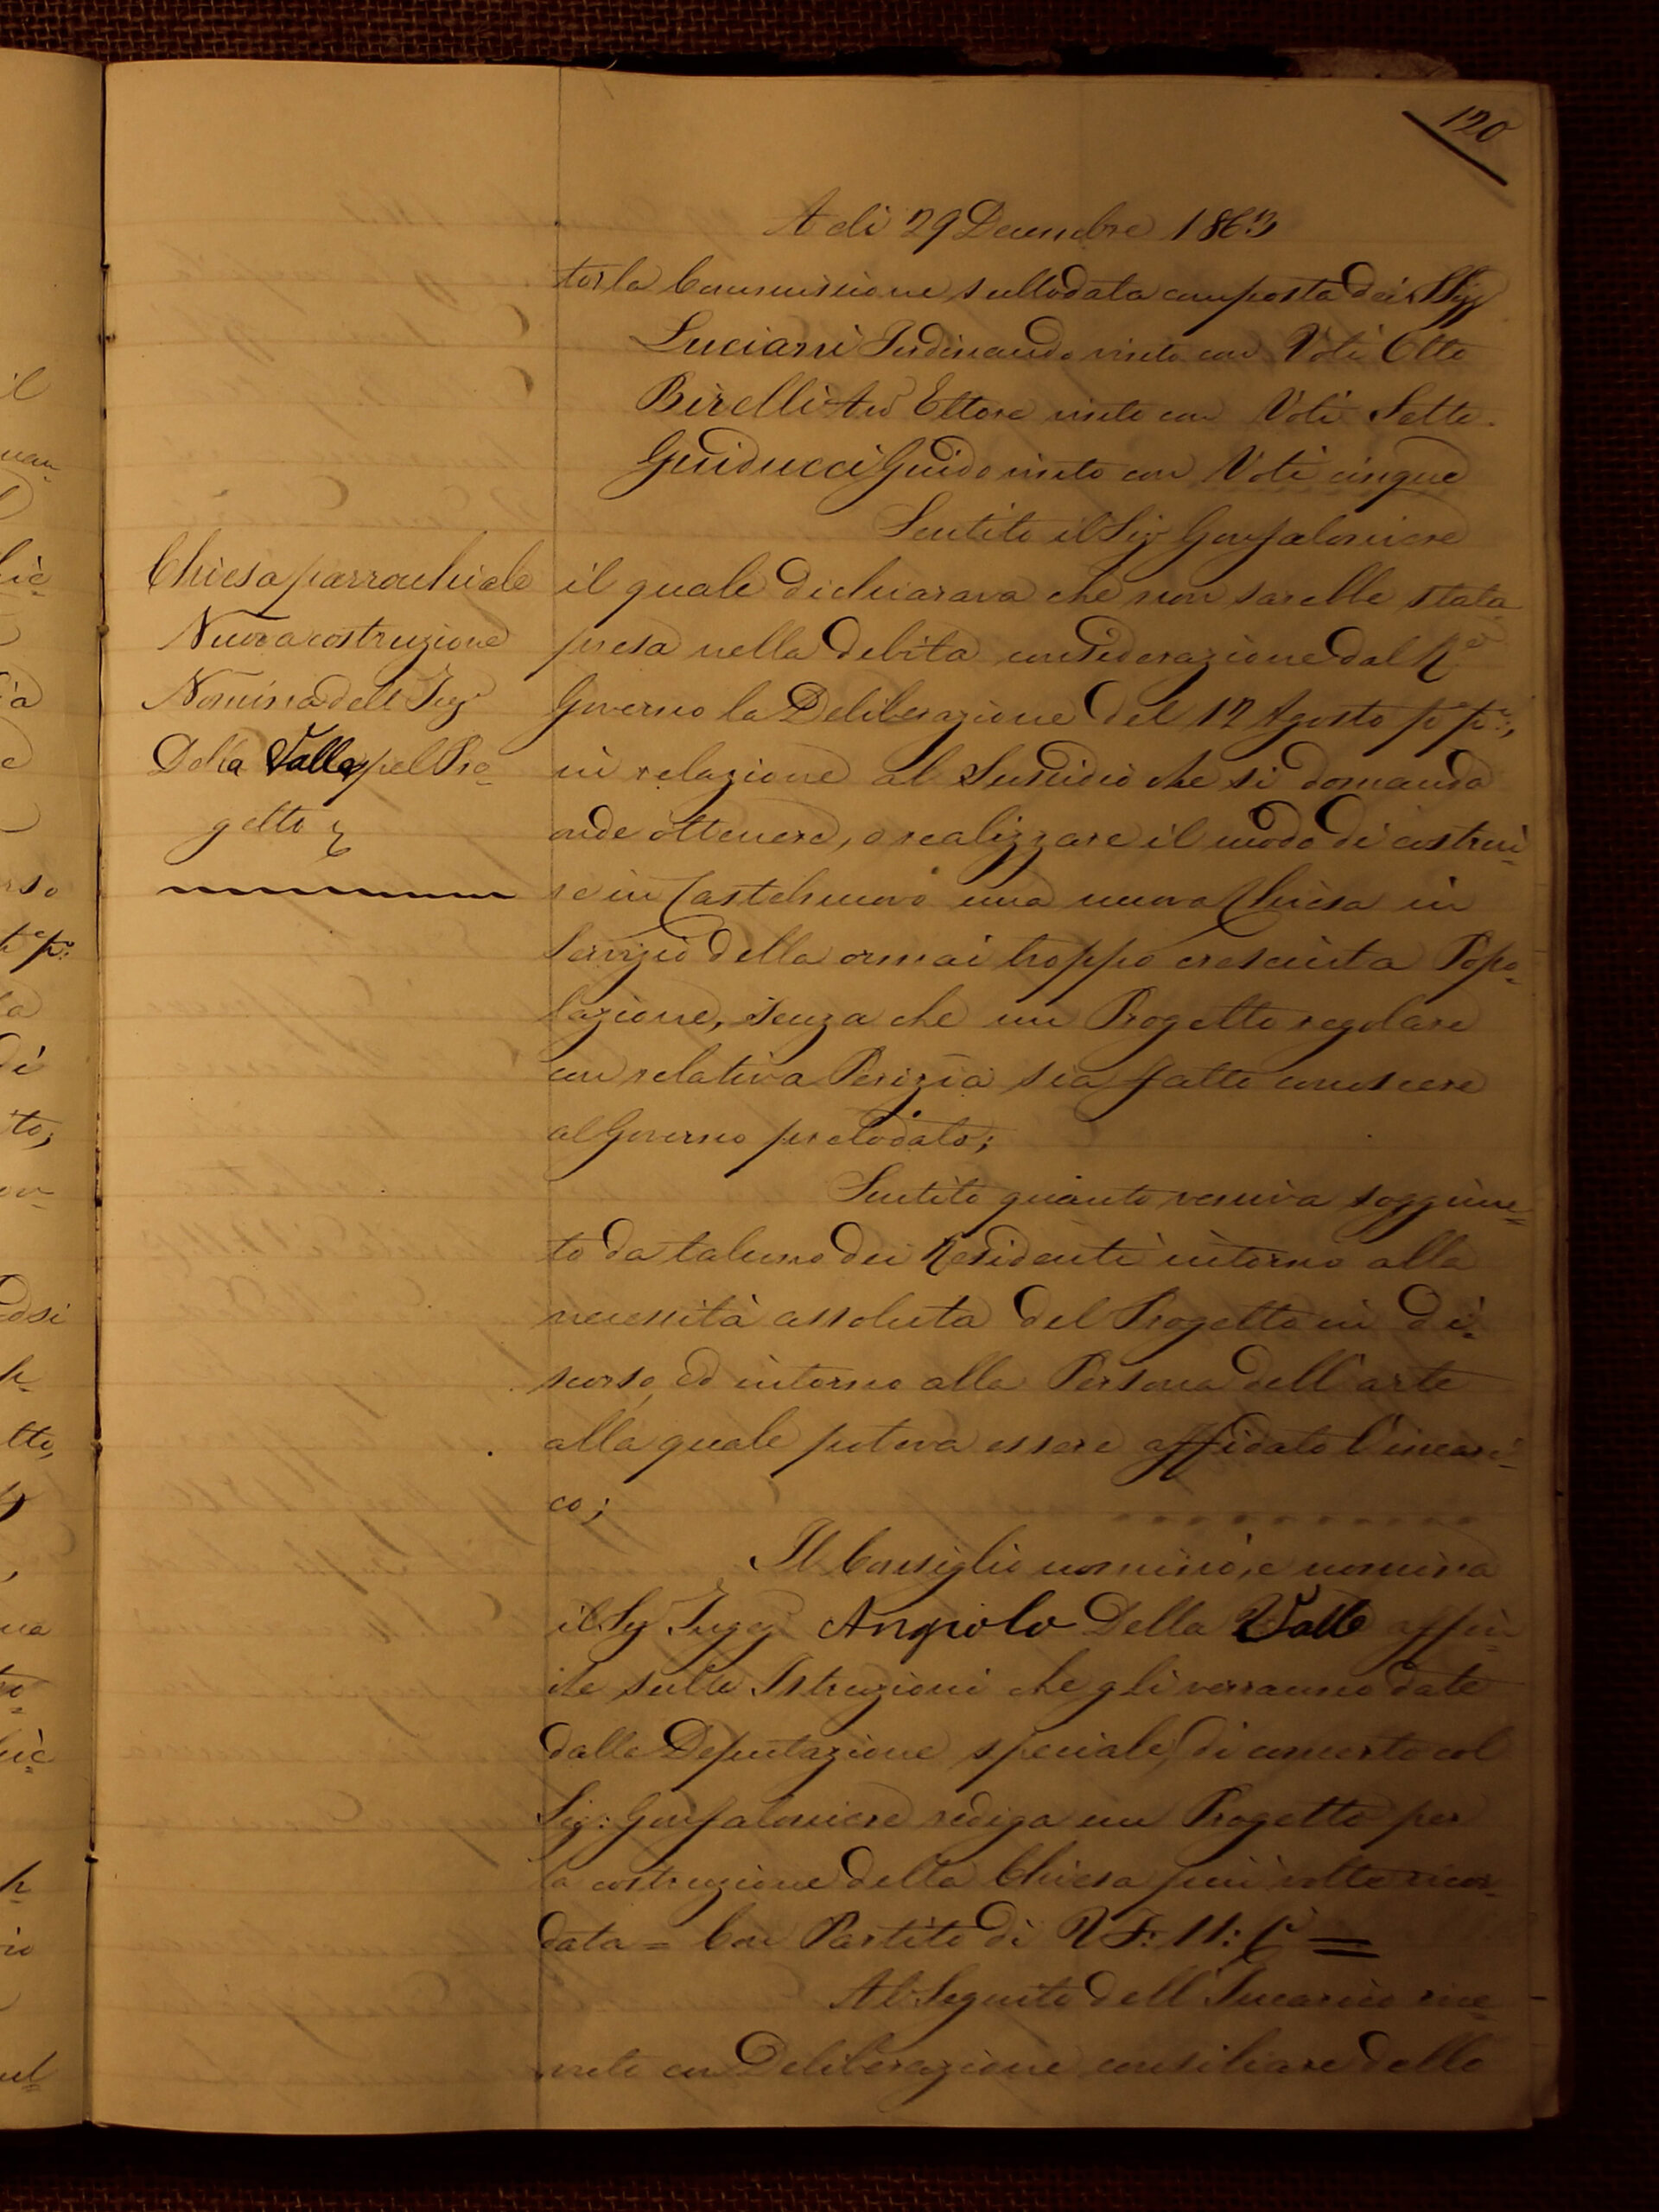 120
A dì 29 Decembre 1863
tosla Commissione sullodata composta dei SSigg
Luciani Ferdinando vinto con Voti Otto
Birelli Avv Ettore vinto con Voti Sette.
Guiducci Guido vinto con Voti cinque
Sentito il Sig Gonfaloniere
Chiesa parrochiale
Nuova costruzione
Nomina dell Ing
Della Valle pel Pro-
getto
il quale dichiarava che non sarebbe stata
presa nella debita considerazione dal Ro
Governo la Deliberazione del 12 Agosto po po:,
in relazione al Sussidio che si domanda
onde ottenere, o realizzare il modo di costrui-
re in Castelnuovo una nuova Chiesa in
Servizio della ormai troppo cresciuta Popo-
lazione, senza che un Progetto regolare
con relativa Perizia sia fatto conoscere
al Governo prelodato;
Sentito quanto veniva soggiun=
to da taluno dei Residenti intorno alla
necessità assoluta del Progetto in di-
scorso, ed intorno alla Persona dell'arte
alla quale poteva essere affidato l'incari-
co;
Il Consiglio nominò, e nomina
il Sig Ingeg Angiolo Della Valle affin-
che sulle Istruzioni che gli verranno date
dalla Deputazione speciale, di concerto col
Sig: Gonfaloniere rediga un Progetto per
la costruzione della Chiesa più volte ricor-
data = Con Partito di VF: 11: C =
Al Seguito dell'Incarico rice-
vuto con Deliberazione consiliare dello